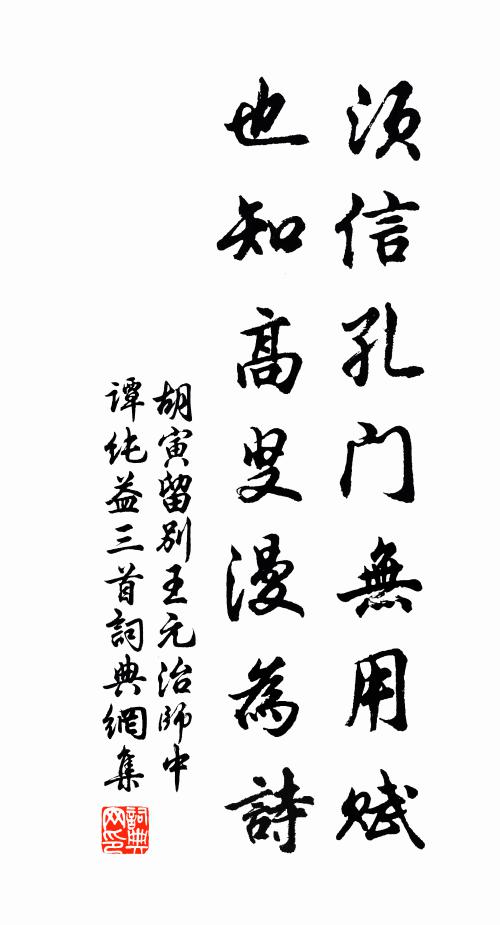 须信孔门無用赋
也知高叟漫為詩
胡寅留別王元治師中
谭纯益三首詞典網集
詞典网印